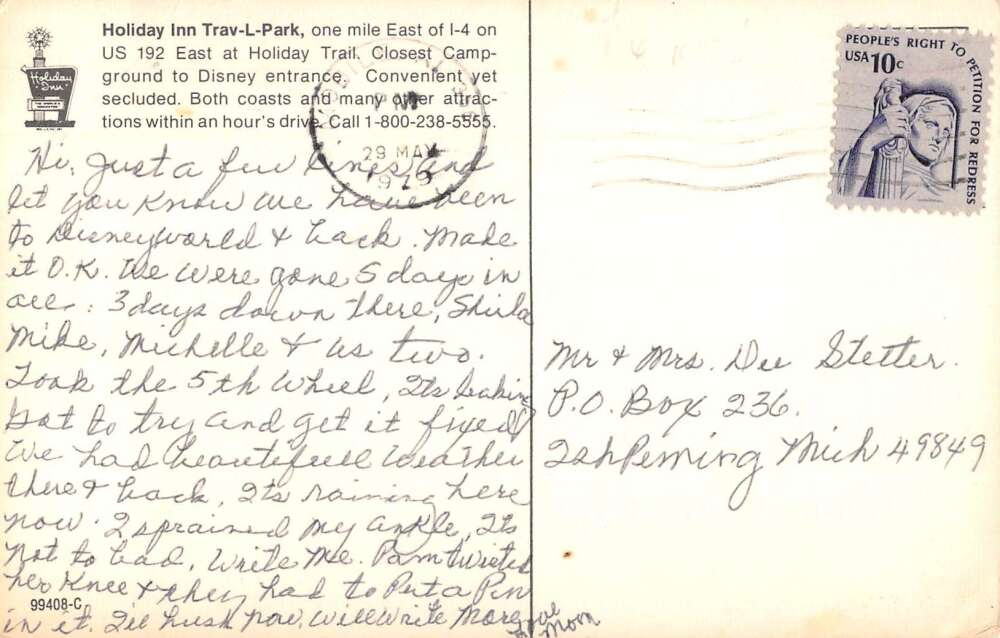 Holiday Inn Trav-L-Park, one mile East of I-4 on
US 192 East at Holiday Trail. Closest Camp-
ground to Disney entrance. Convenient yet
secluded. Both coasts and many other attrac-
tions within an hour's drive. Call 1-800-238-5555.
Holiday Inn
29 MAY
1979
PEOPLE'S RIGHT TO PETITION FOR REDRESS
USA 10c
Hi, Just a few lines and
let you Know we have been
to Disneyworld & back. Made
it O.K. We were gone 5 days in
all: 3 days down there, Shiela
Mike, Michelle & us two.
Took the 5th Wheel, Its leaking
got to try and get it fixed
We had beautifull Weather
there & back, Its raining here
now. I sprained my ankle, Its
Not to bad, Write Me. Pam twisted
her Knee & they had to Put a Pin
in it. I'll hush now, Will Write More
Love
Mom
99408-C
Mr & Mrs. Dee Stetter.
P.O. Box 236.
IshPeming Mich 49849